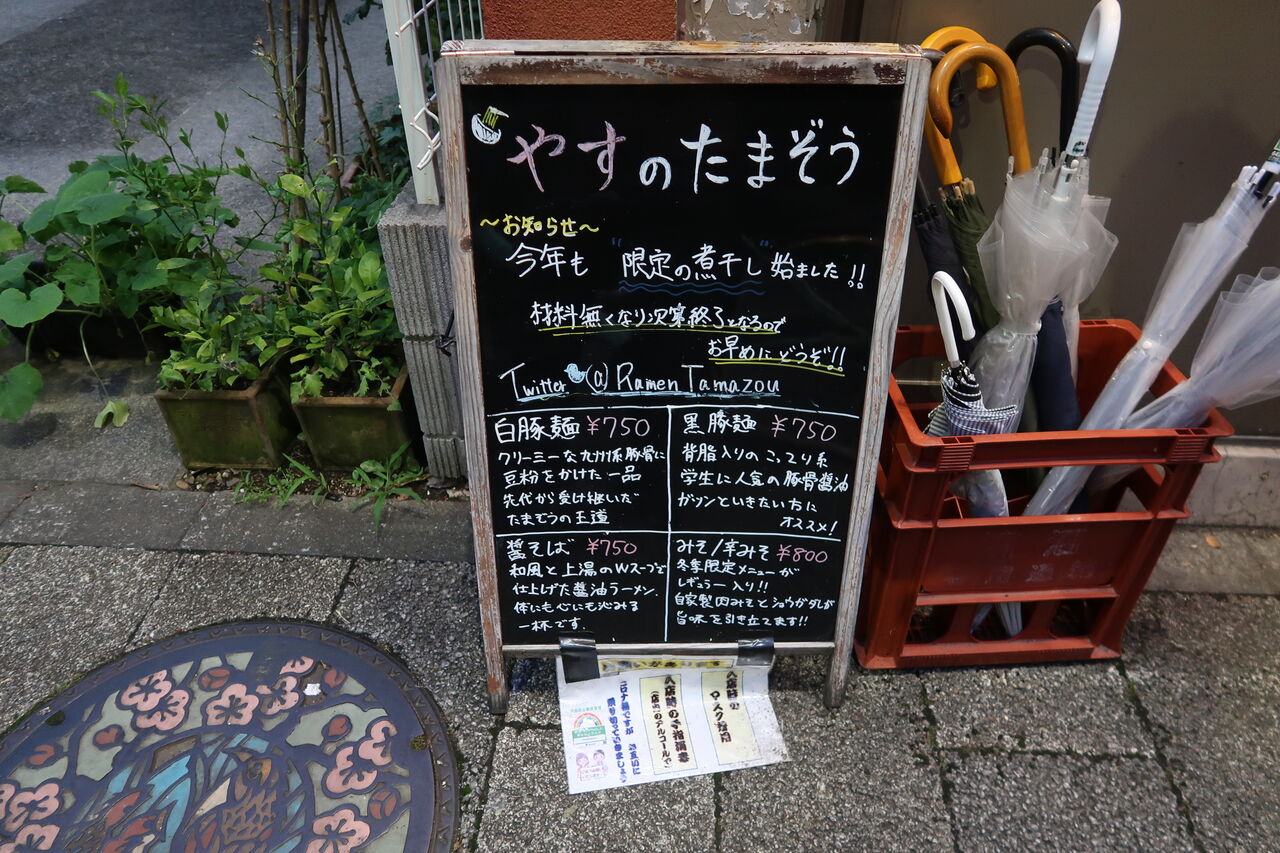 やすのたまぞう
～お知らせ～
今年も "限定の煮干し" 始ました!!
材料無くなり次第終了となるので
お早めにどうぞ!!
Twitter @RamenTamazou
白豚麺 ¥750
クリーミーな九州系豚骨に
豆粉をかけた一品
先代から受け継いだ
たまぞうの王道
黒豚麺 ¥750
背脂入りのこってり系
学生に人気の豚骨醤油
ガツンといきたい方に
オススメ!
醤そば ¥750
和風と上湯のWスープで
仕上げた醤油ラーメン.
体にも心にも沁みる
一杯です.
みそ/辛みそ ¥800
冬季限定メニューが
レギュラー入り!!
自家製肉みそとショウガダレが
旨味を引き立てます!!
入店時の
マスク着用
入店時の手指消毒
(店内のアルコールで)
コロナ禍ですが お互いに
乗り切っていきましょう